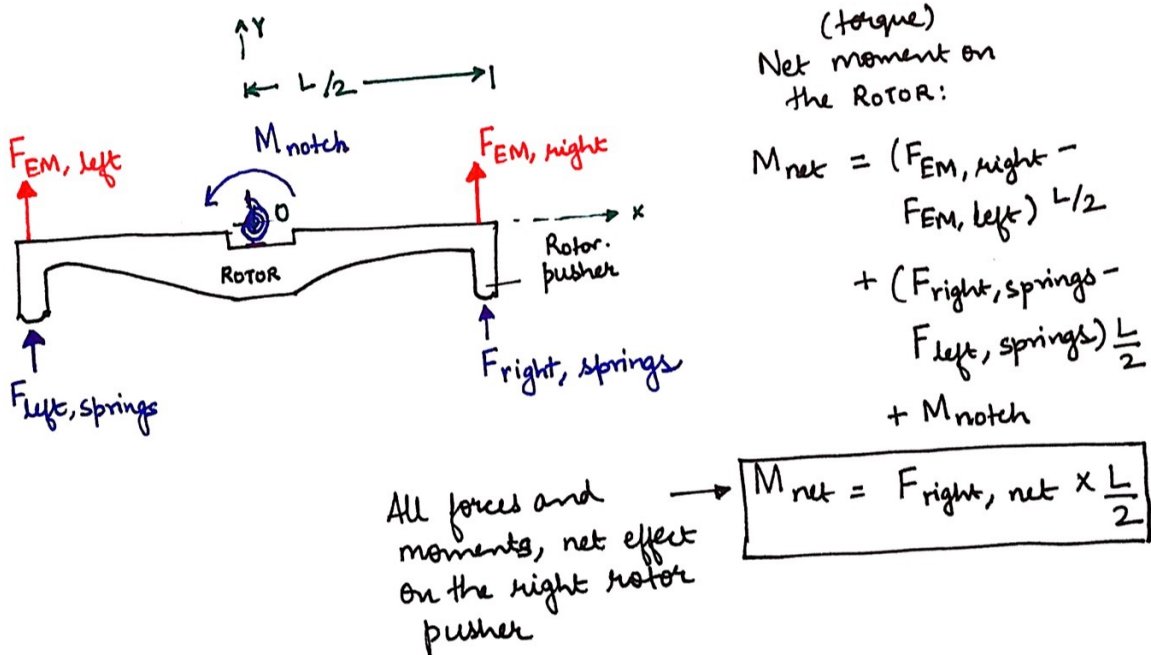 Y
L/2
M notch
F EM, left
F EM, right
O
x
ROTOR
Rotor.
pusher
F left, springs
F right, springs
(torque)
Net moment on
the ROTOR:
M net = (F EM, right -
F EM, left) L/2
+ (F right, springs -
F left, springs) L/2
+ M notch
All forces and
moments, net effect
on the right rotor
pusher
M net = F right, net × L/2